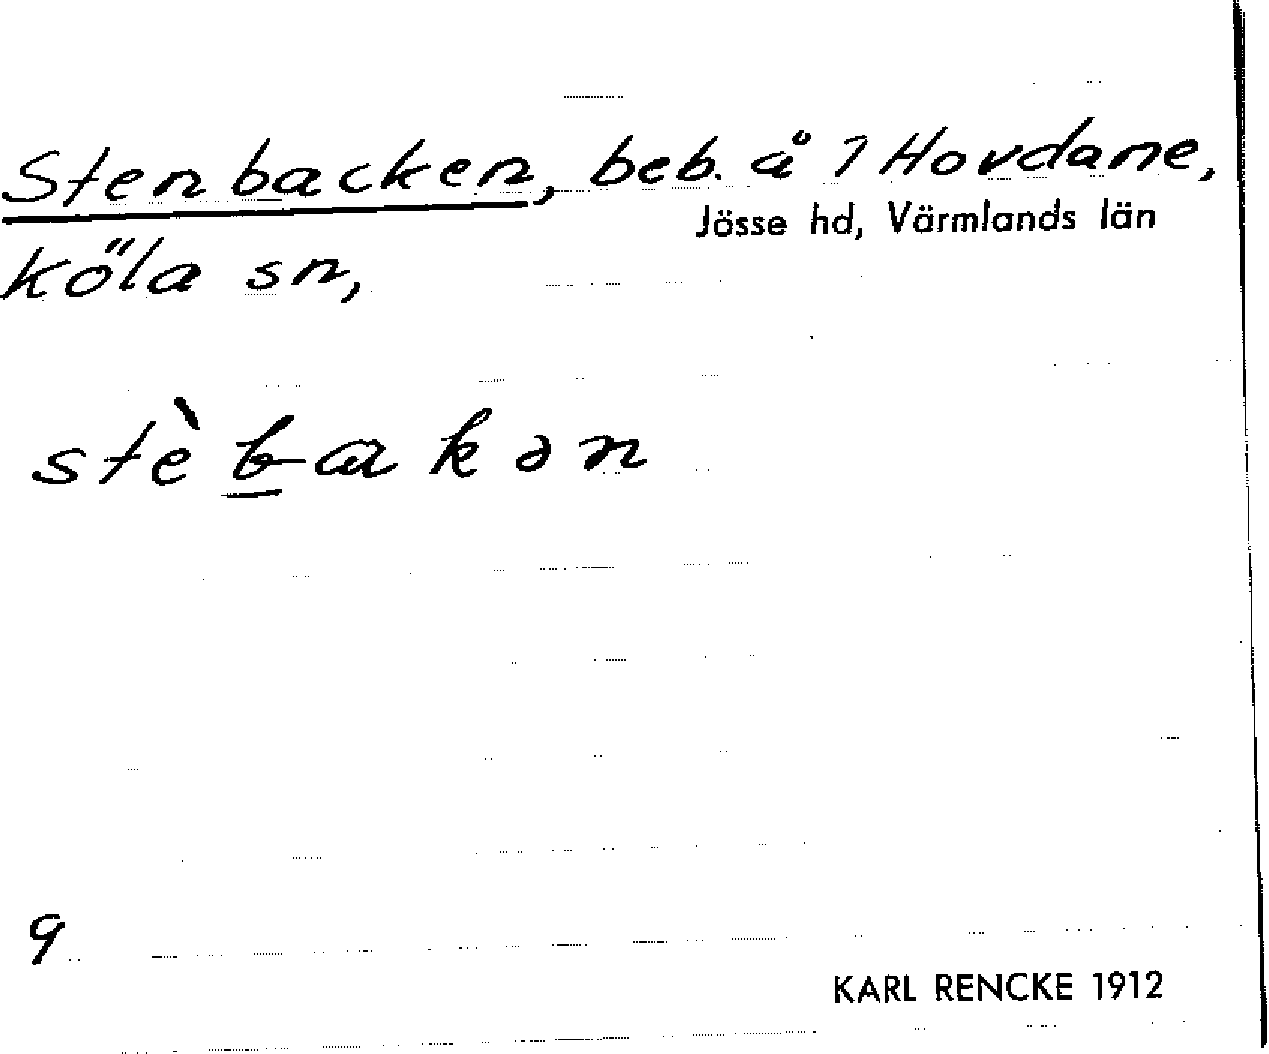 Stenbacken, beb. å 7 Hovdane,
Jösse hd, Värmlands län
Köla sn,
stèbakən
9
KARL RENCKE 1912